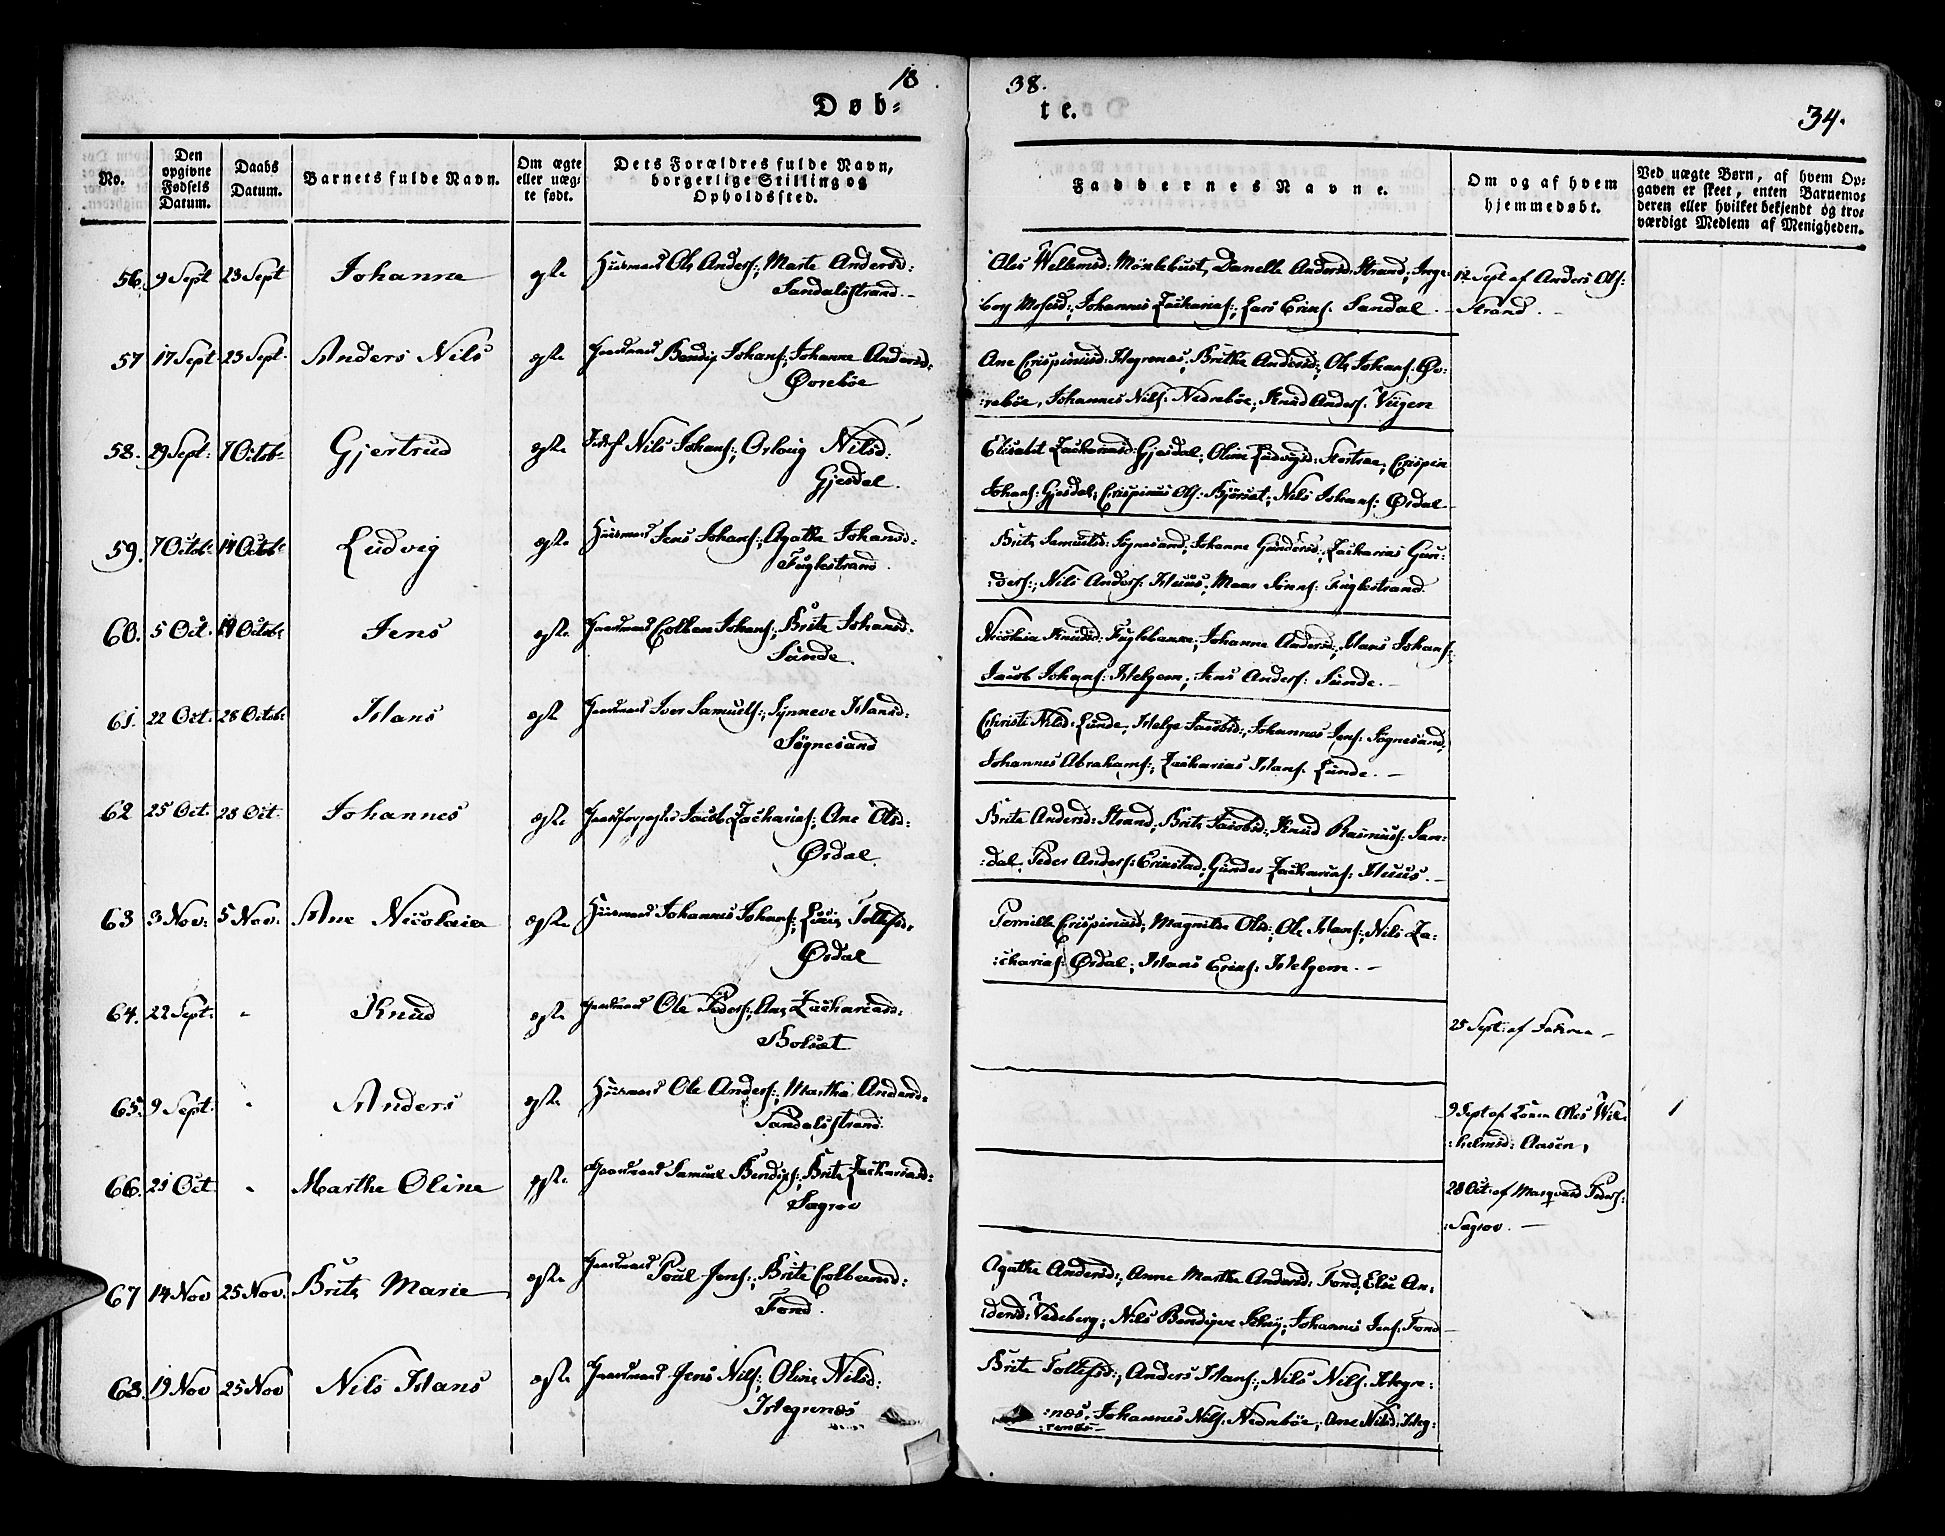 18
38.
Døb=
te.
34.
No.
Den opgivne Fødsels Datum.
Daabs Datum.
Barnets fulde Navn.
Om ægte eller uæg- te født.
Dets Forældres fulde Navn, borgerlige Stilling og Opholdssted.
Faddernes Navne.
Om og af hvem hjemmedøbt.
Ved uægte Børn, af hvem Op- gaven er skeet, enten Barnemo- deren eller hvilket bekjendt og tro- værdigt Medlem af Menigheden.
56. 9 Sept 23 Sept Johanne egte Huusmand Ole Anders:, Marte Andersd:
Sandalsstrand.
Oles Willemsd: Myklebust, Danelle Andersd: Strand, Inge-
borg Mosesd:, Johannes Zacharias:, Lars Erics: Sandal.
12 Sept af Anders Ols:
Strand.
57 17 Sept 23 Sept. Anders Nils egte Gaardmand Bendix Johans:, Johanne Andersd:
Ørebøe
Ane Crispinusd: Hegrenæs, Brithe Andersd:, Ole Johans: Ø-
:rebøe, Johannes Nils: Nedrebøe, Knud Anders: Viigen
58. 29 Sept: 7 Octob: Gjertrud egte Nils Johans:, Orloug Nilsd:
Gjesdal.
Elisabet Zachariasd: Gjesdal, Oline Ludvigsd:, Crispin
Johans: Gjesdal, Crispinus Ols:, Nils Johans: Ørdal
59. 7 Octob: 14 Octob: Ludvig egte Huusmand Jens Johans:, Agathe Johansd:
Fuglestrand.
Brite Samuelsd: Søgnesand, Johanne Gundersd:, Zacharias Gun-
:ders:, Nils Anders: Huus, Fuglestrand.
60. 5 Oct. 14 Octob: Jens egte Gaardmand Colben Johans:, Brite Johansd:
Sunde.
Nicolaia Knudsd:, Johanne Andersd:, Hans Johans:
Jacob Johans: Helgem, Jens Anders: Sunde.
61. 22 Oct. 28 Octob: Hans egte Gaardmand Iver Samuels:, Synneve Hansd:
Søgnesand
Christi Nilsd: Lunde, Helge Jacobsd:, Johannes Jens: Søgnesand,
Johannes Abrahams:, Zacharias Hans: Lunde.
62 25 Oct. 28 Oct. Johannes egte Jacob Zacharias:, Ane Olsd:
Ørdal.
Brite Andersd: Strand, Brite Jacobsd:, Knud Rasmus: San-
:dal, Peder Anders: Erikstad, Gunder Zacharias: Huus.
63 3 Nov: 5 Nov: Ane Nicolaia egte Huusmand Johannes Johans:, Lucie Tollefsd:
Ørdal
Pernille Crispinusd:, Magnilde Olsd:, Ole Hans:, Nils Za-
:charias: Ørdal, Hans Erics: Helgem.
64. 22 Sept: Knud egte Gaardmand Ole Peders:, Ane Zachariasd:
Bolsæt
25 Sept: af Faderen
65. 9 Sept. Anders egte Huusmand Ole Anders:, Marthe Andersd:
Sandalsstrand.
9 Sept af Konen Oles Wil-
:helmsd: Aasen,
1
66. 21 Oct Marthe Oline egte Gaardmand Samuel Bendix:, Brite Zachariasd:
Sagrov
28 Oct: af Marqvard Peders:
Sagrov.
67 14 Nov 25 Nov. Brite Marie egte Gaardmand Poul Jens:, Brite Colbensd:
Fond.
Agathe Andersd:, Anne Marthe Andersd: Fond, Else An-
:dersd: Vedeberg, Nils Johannes Jens: Fond
68. 19 Nov 25 Nov Nils Hans egte Gaardmand Jens Nils:, Oline Nilsd:
Hegrenæs
Brite Tollefsd:, Anders Hans:, Nils Nils: Hegre-
:næs, Johannes Nils: Nedrebøe, Ane Nilsd: Heg-
:renæs